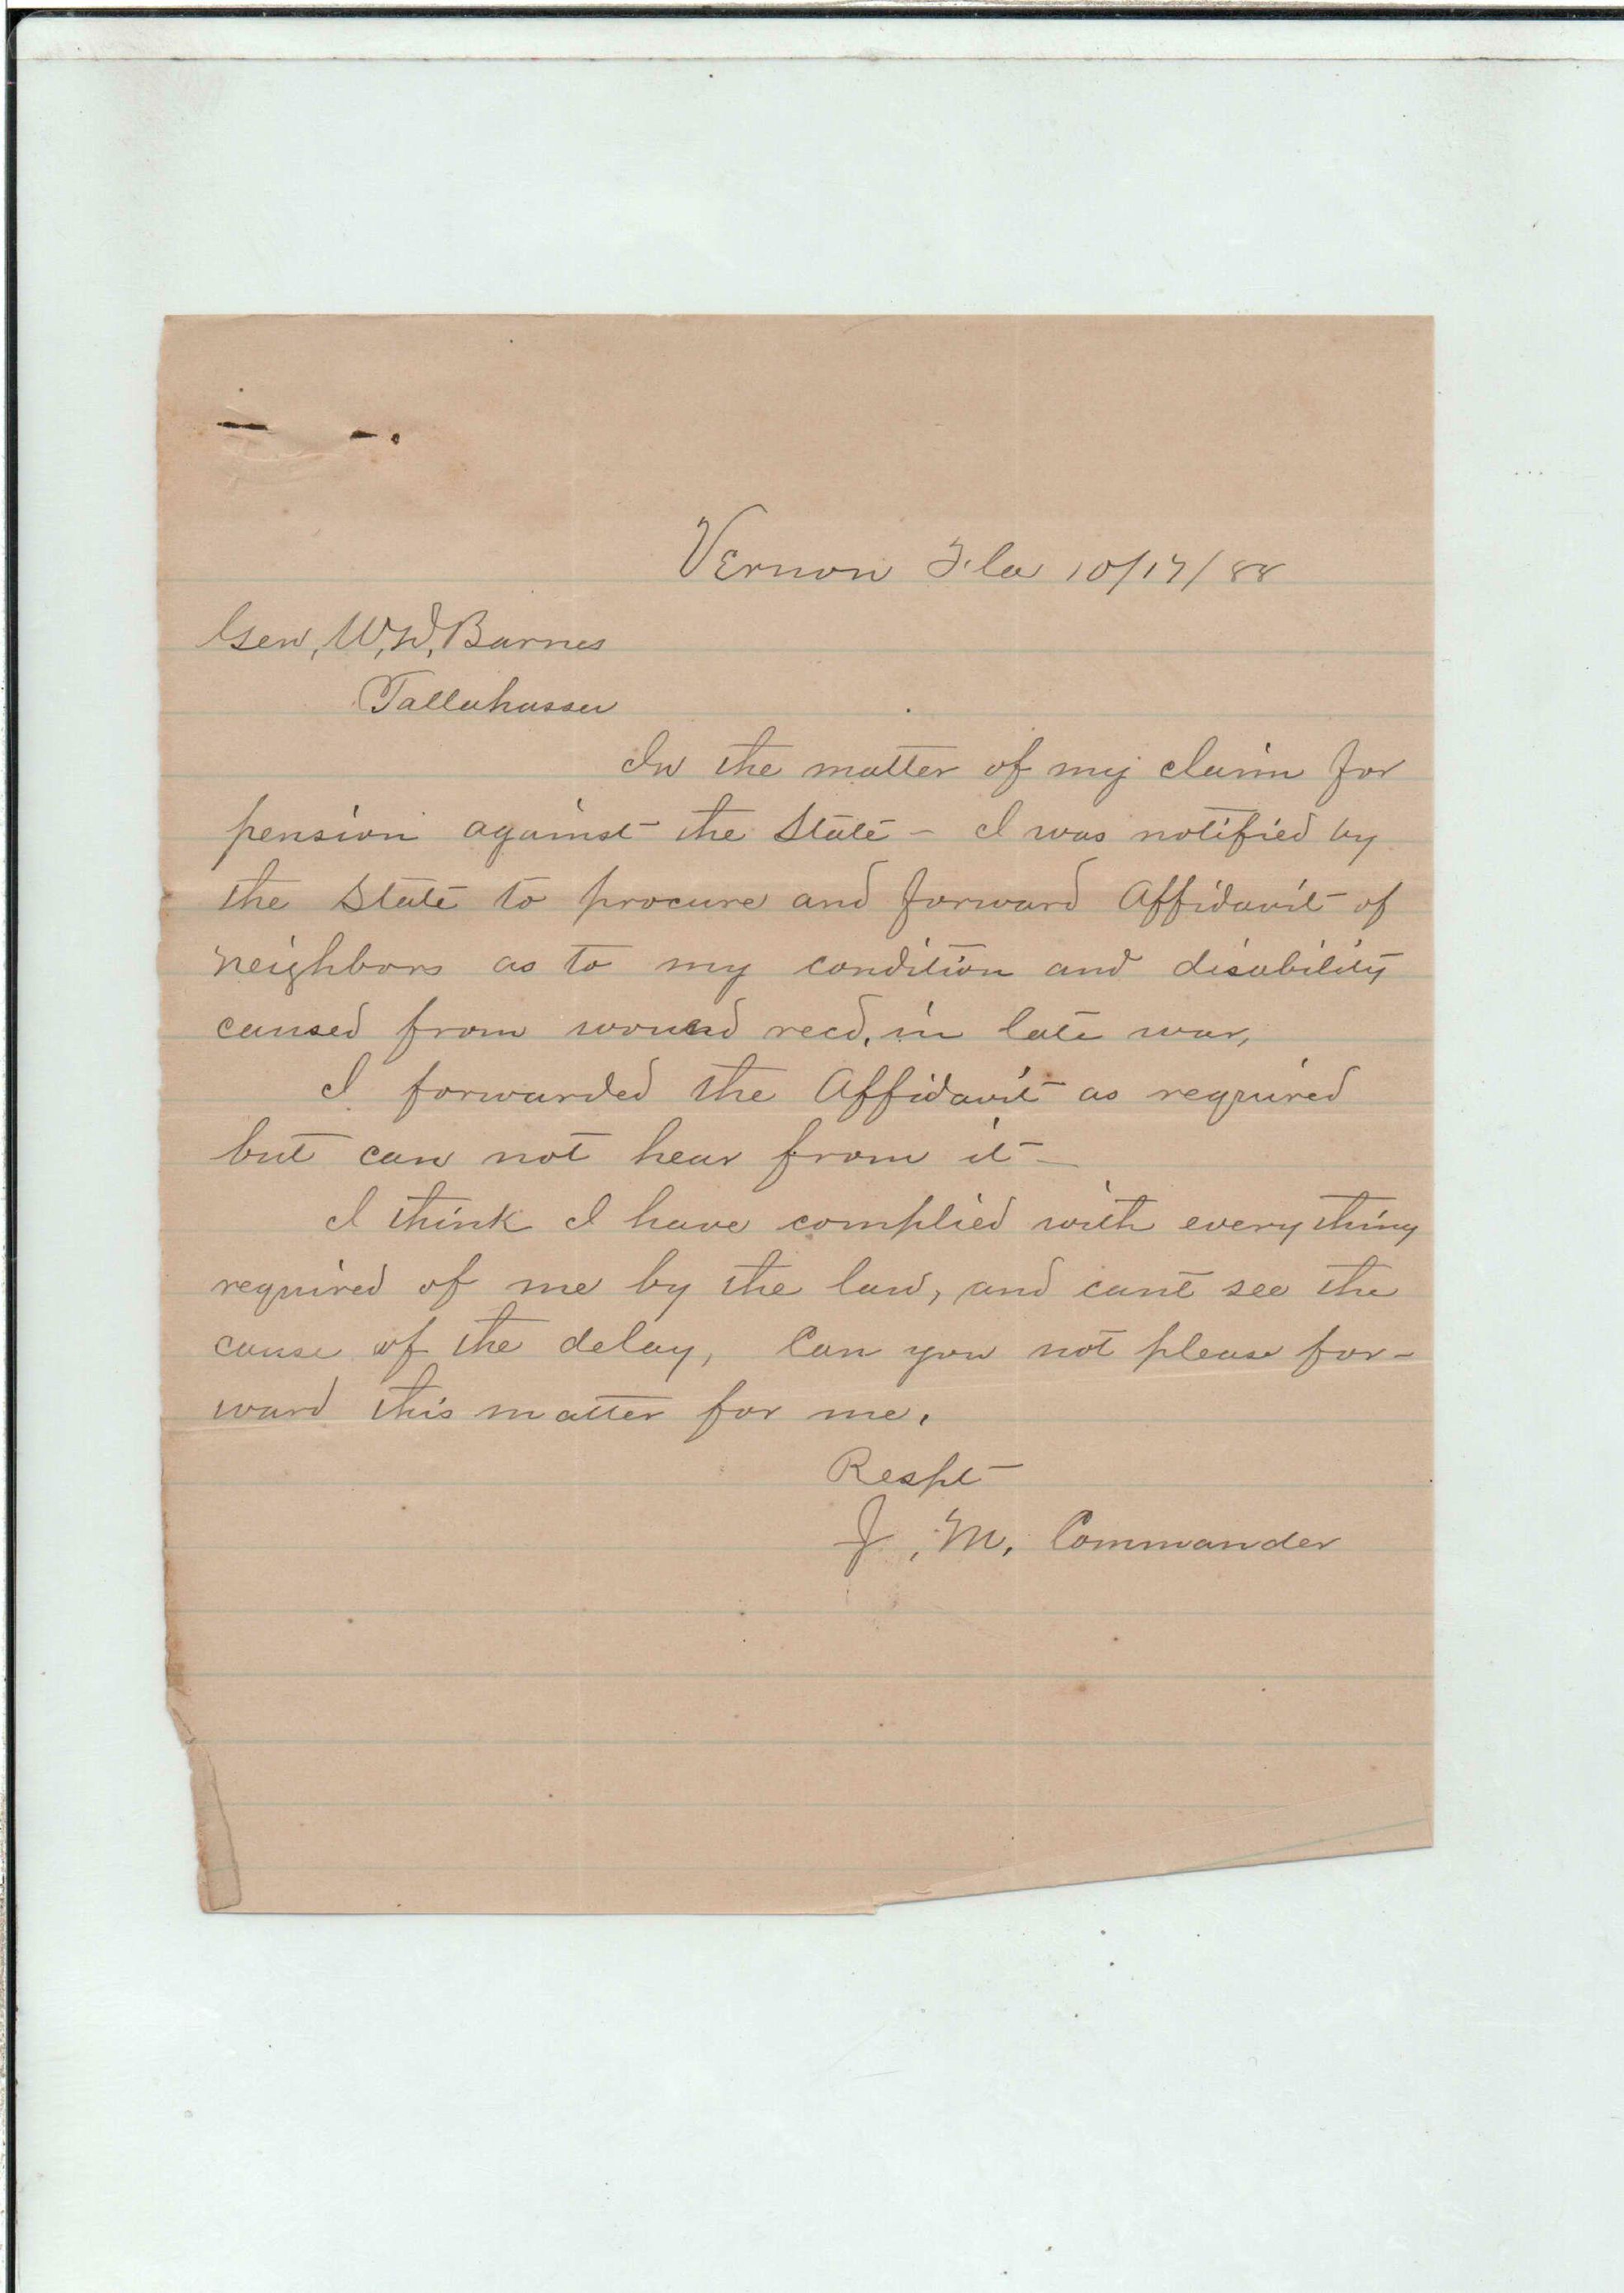 Vernon Fla 10/17/88
Gen, W, D, Barnes
Tallahassee
In the matter of my claim for
pension against the State - I was notified by
the State to procure and forward Affidavit of
neighbors as to my condition and disability
caused from wound recd, in late war,
I forwarded the Affidavit as required
but can not hear from it -
I think I have complied with every thing
required of me by the law, and cant see the
cause of the delay, Can you not please for-
ward this matter for me.
Respt
J, M, Commander